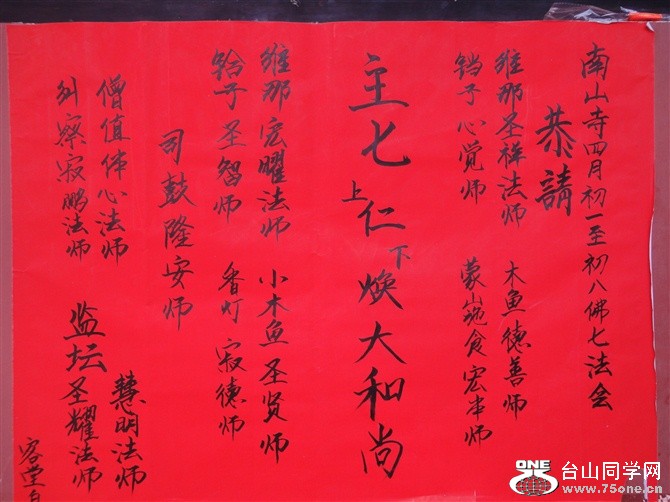 南山寺四月初一至初八佛七法会
恭請
维那圣祥法师 木鱼德善师
铛子心觉师 蒙山施食宏本师
主七上仁下焕大和尚
维那宏曜法师 小木鱼圣贤师
铪子圣智师 香灯寂德师
司鼓隆安师
僧值体心法师 慧明法师
纠察寂鹏法师 监坛圣耀法师
客堂
ONE
台山同学网
www.75one.cn